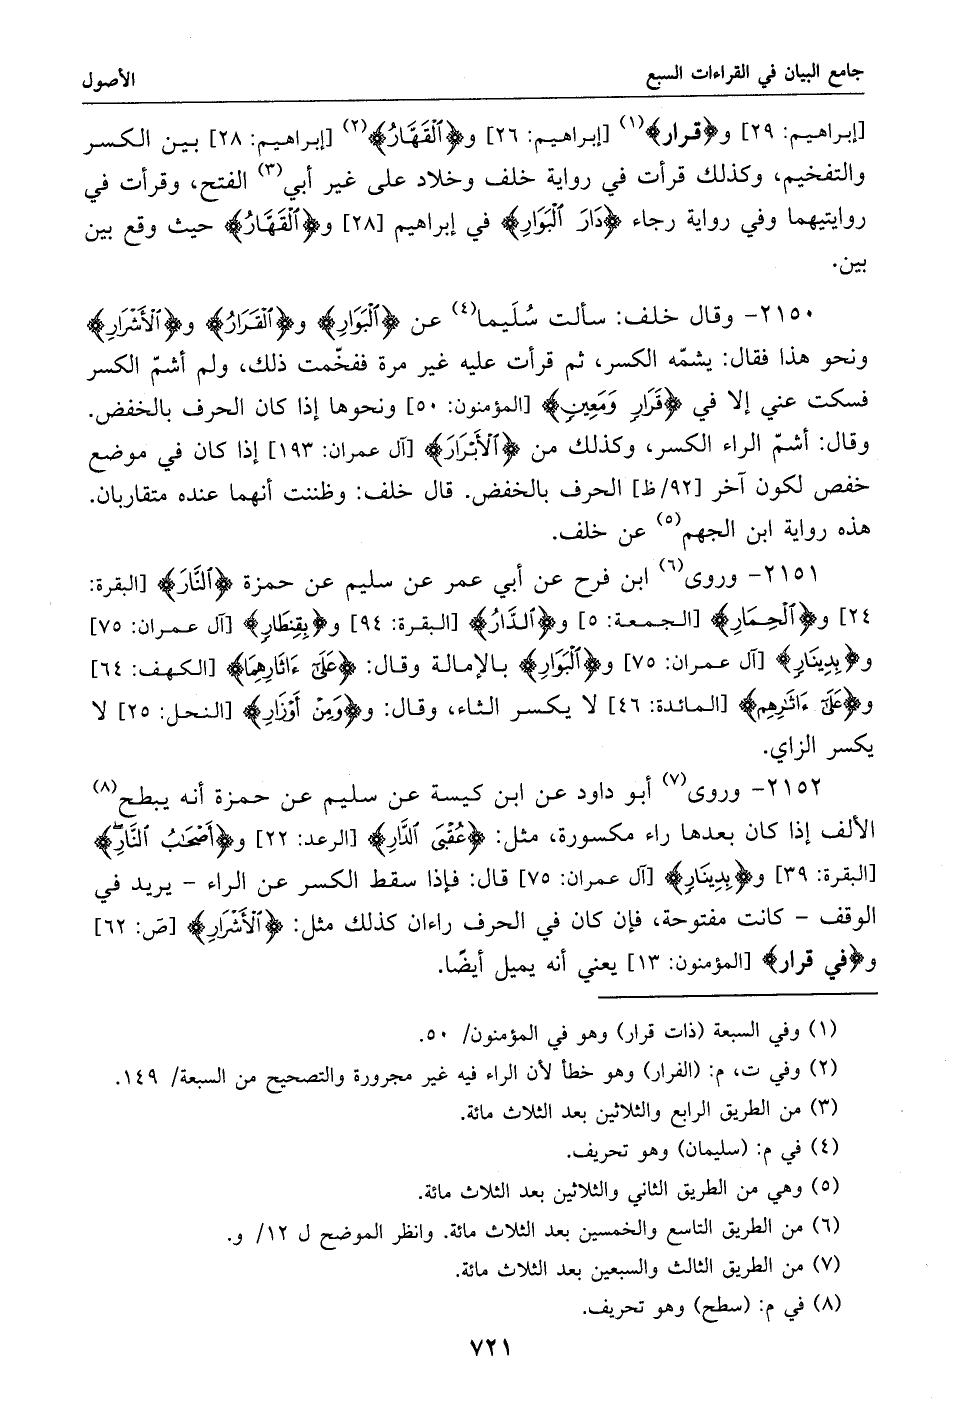 جامع البيان في القراءات السبع
الأصول
[إبراهيم: ٢٩] و﴿قرار﴾(١) [إبراهيم: ٢٦] و﴿ٱلْقَهَّارُ﴾(٢) [إبراهيم: ٢٨] بين الكسر
والتفخيم، وكذلك قرأت في رواية خلف وخلاد على غير أبي(٣) الفتح، وقرأت في
روايتيهما وفي رواية رجاء ﴿دَارَ ٱلْبَوَارِ﴾ في إبراهيم [٢٨] و﴿ٱلْقَهَّارُ﴾ حيث وقع بين
بين.
٢١٥٠- وقال خلف: سألت سُلَيما(٤) عن ﴿ٱلْبَوَارِ﴾ و﴿ٱلْقَرَارُ﴾ و﴿ٱلْأَشْرَارِ﴾
ونحو هذا فقال: يشمّه الكسر، ثم قرأت عليه غير مرة ففخّمت ذلك، ولم أشمّ الكسر
فسكت عني إلا في ﴿قَرَارٍ وَمَعِينٍ﴾ [المؤمنون: ٥٠] ونحوها إذا كان الحرف بالخفض.
وقال: أشمّ الراء الكسر، وكذلك من ﴿ٱلْأَبْرَارَ﴾ [آل عمران: ١٩٣] إذا كان في موضع
خفص لكون آخر [٩٢/ظ] الحرف بالخفض. قال خلف: وظننت أنهما عنده متقاربان.
هذه رواية ابن الجهم(٥) عن خلف.
٢١٥١- وروى(٦) ابن فرح عن أبي عمر عن سليم عن حمزة ﴿ٱلنَّارَ﴾ [البقرة:
٢٤] و﴿ٱلْحِمَارِ﴾ [الجمعة: ٥] و﴿ٱلدَّارُ﴾ [البقرة: ٩٤] و﴿بِقِنطَارٍ﴾ [آل عمران: ٧٥]
و﴿بِدِينَارٍ﴾ [آل عمران: ٧٥] و﴿ٱلْبَوَارِ﴾ بالإمالة وقال: ﴿عَلَىٰٓ ءَاثَارِهِمَا﴾ [الكهف: ٦٤]
و﴿عَلَىٰٓ ءَاثَٰرِهِم﴾ [المائدة: ٤٦] لا يكسر الثاء، وقال: و﴿وَمِنْ أَوْزَارِ﴾ [النحل: ٢٥] لا
يكسر الزاي.
٢١٥٢- وروى(٧) أبو داود عن ابن كيسة عن سليم عن حمزة أنه يبطح(٨)
الألف إذا كان بعدها راء مكسورة، مثل: ﴿عُقْبَى ٱلدَّارِ﴾ [الرعد: ٢٢] و﴿أَصْحَٰبُ ٱلنَّارِۖ﴾
[البقرة: ٣٩] و﴿بِدِينَارٍ﴾ [آل عمران: ٧٥] قال: فإذا سقط الكسر عن الراء - يريد في
الوقف - كانت مفتوحة، فإن كان في الحرف راءان كذلك مثل: ﴿ٱلْأَشْرَارِ﴾ [صَ: ٦٢]
و﴿في قرار﴾ [المؤمنون: ١٣] يعني أنه يميل أيضًا.
(١) وفي السبعة (ذات قرار) وهو في المؤمنون/ ٥٠.
(٢) وفي ت، م: (الفرار) وهو خطأ لأن الراء فيه غير مجرورة والتصحيح من السبعة/ ١٤٩.
(٣) من الطريق الرابع والثلاثين بعد الثلاث مائة.
(٤) في م: (سليمان) وهو تحريف.
(٥) وهي من الطريق الثاني والثلاثين بعد الثلاث مائة.
(٦) من الطريق التاسع والخمسين بعد الثلاث مائة. وانظر الموضح ل ١٢/ و.
(٧) من الطريق الثالث والسبعين بعد الثلاث مائة.
(٨) في م: (سطح) وهو تحريف.
٧٢١